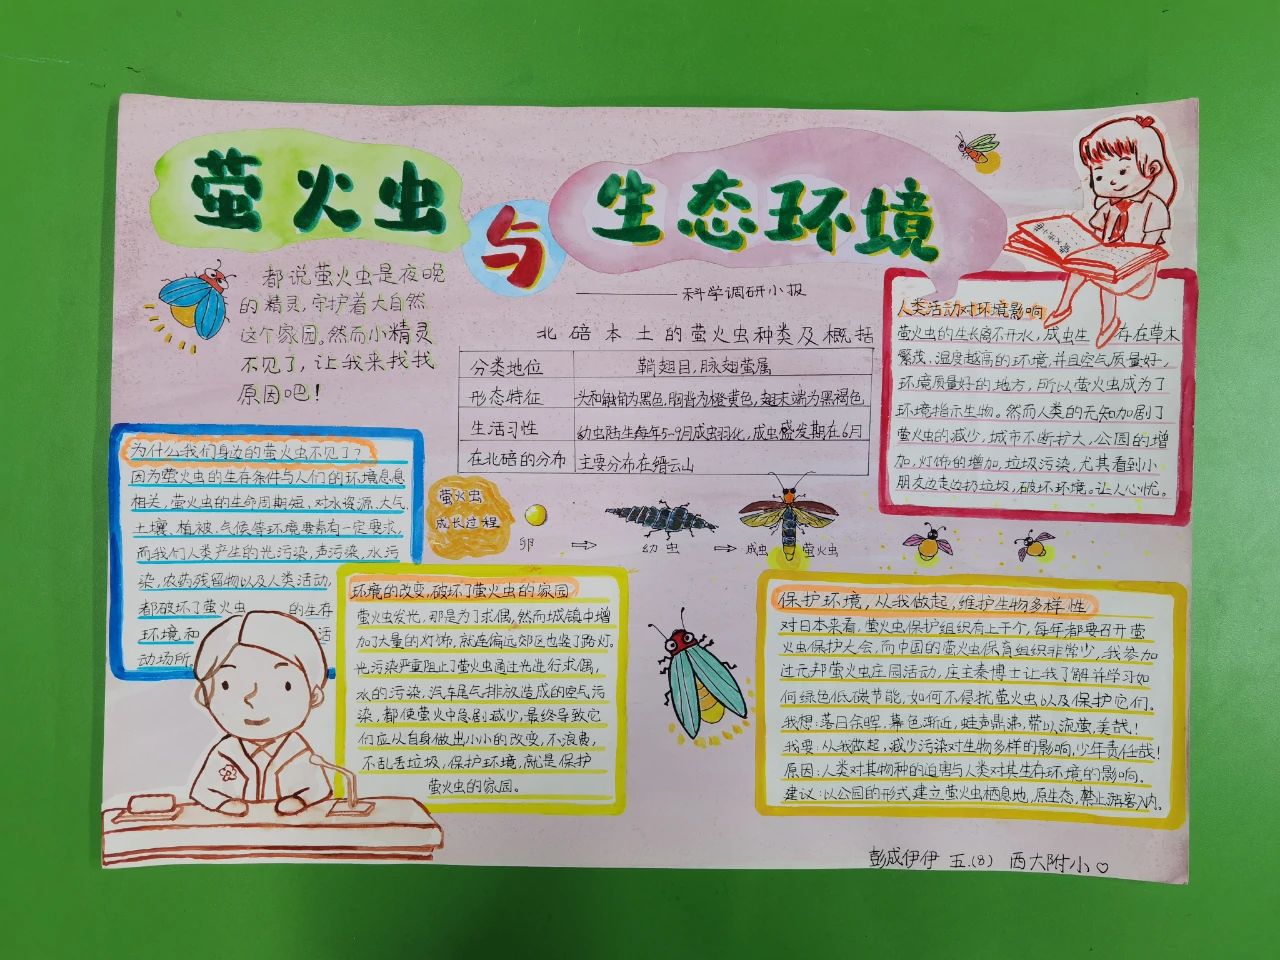 萤火虫
与
生态环境
科学调研小报
都说萤火虫是夜晚
的精灵,守护着大自然
这个家园。然而小精灵
不见了,让我来找找
原因吧!
北碚本土的萤火虫种类及概括
分类地位 鞘翅目,脉翅萤属
形态特征 头和触角为黑色.胸背为橙黄色,翅末端为黑褐色
生活习性 幼虫陆生每年5-9月成虫羽化,成虫盛发期在6月
在北碚的分布 主要分布在缙云山
人类活动对环境影响
萤火虫的生长离不开水,成虫生存在草木
繁茂、湿度越高的环境,并且空气质量好,
环境质量好的地方,所以萤火虫成为了
环境指示生物。然而人类的无知加剧了
萤火虫的减少,城市不断扩大,公园的增
加,灯饰的增加,垃圾污染,尤其看到小
朋友边走边扔垃圾,破坏环境。让人心忧。
为什么我们身边的萤火虫不见了?
因为萤火虫的生存条件与人们的环境息息
相关,萤火虫的生命周期短,对水资源、大气、
土壤、植被、气候等环境要素有一定要求,
而我们人类产生的光污染,声污染,水污
染,农药残留物以及人类活动,
都破坏了萤火虫的生存
环境和活
动场所
萤火虫
成长过程
卵 ⇒ 幼虫 ⇒ 成虫 萤火虫
环境的改变,破坏了萤火虫的家园
萤火虫发光,那是为了求偶,然而城镇中增
加了大量的灯饰,就连偏远郊区也竖了路灯。
光污染严重阻止了萤火虫通过光进行求偶,
水的污染,汽车尾气排放造成的空气污
染,都使萤火中急剧减少,最终导致它
们应从自身做出小小的改变,不浪费,
不乱丢垃圾,保护环境,就是保护
萤火虫的家园。
保护环境,从我做起,维护生物多样性
对日本来看,萤火虫保护组织有上千个,每年都要召开萤
火虫保护大会,而中国的萤火虫保育组织非常少,我参加
过元邦萤火虫庄园活动,庄主秦博士让我了解并学习如
何绿色低碳节能,如何不侵扰萤火虫以及保护它们。
我想:落日余晖,幕色渐近,蛙声鼎沸,带以流萤,美哉!
我要:从我做起,减少污染对生物多样的影响,少年责任哉!
原因:人类对其物种的迫害与人类对其生存环境的影响.
建议:以公园的形式建立萤火虫栖息地,原生态,禁止游客入内。
彭成伊伊 五.(8) 西大附小♡